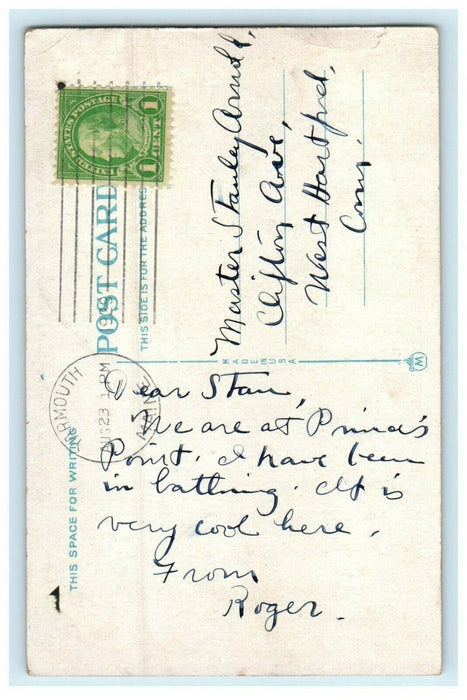 UNITED STATES POSTAGE
1 CENT 1
POST CARD
THIS SIDE IS FOR THE ADDRESS
Master Stanley Arnold,
Clifton Ave,
West Hartford,
Conn.
MADE IN USA
M
YARMOUTH
AUG 23 1 PM
MAINE
THIS SPACE FOR WRITING
Dear Stan,
We are at Prince's
Point. I have been
in bathing. It is
very cool here.
From
Roger.
1